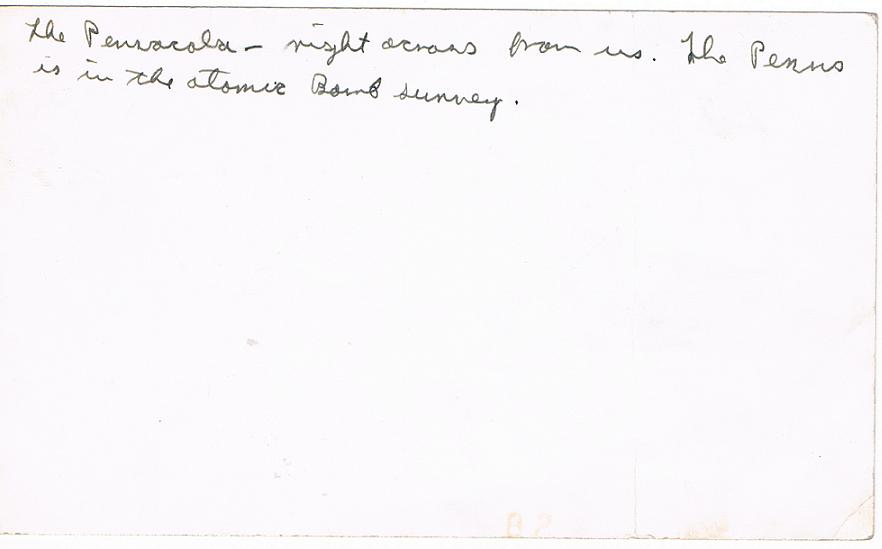 The Pensacola – right across from us. The Penns
is in the atomic Bomb survey.